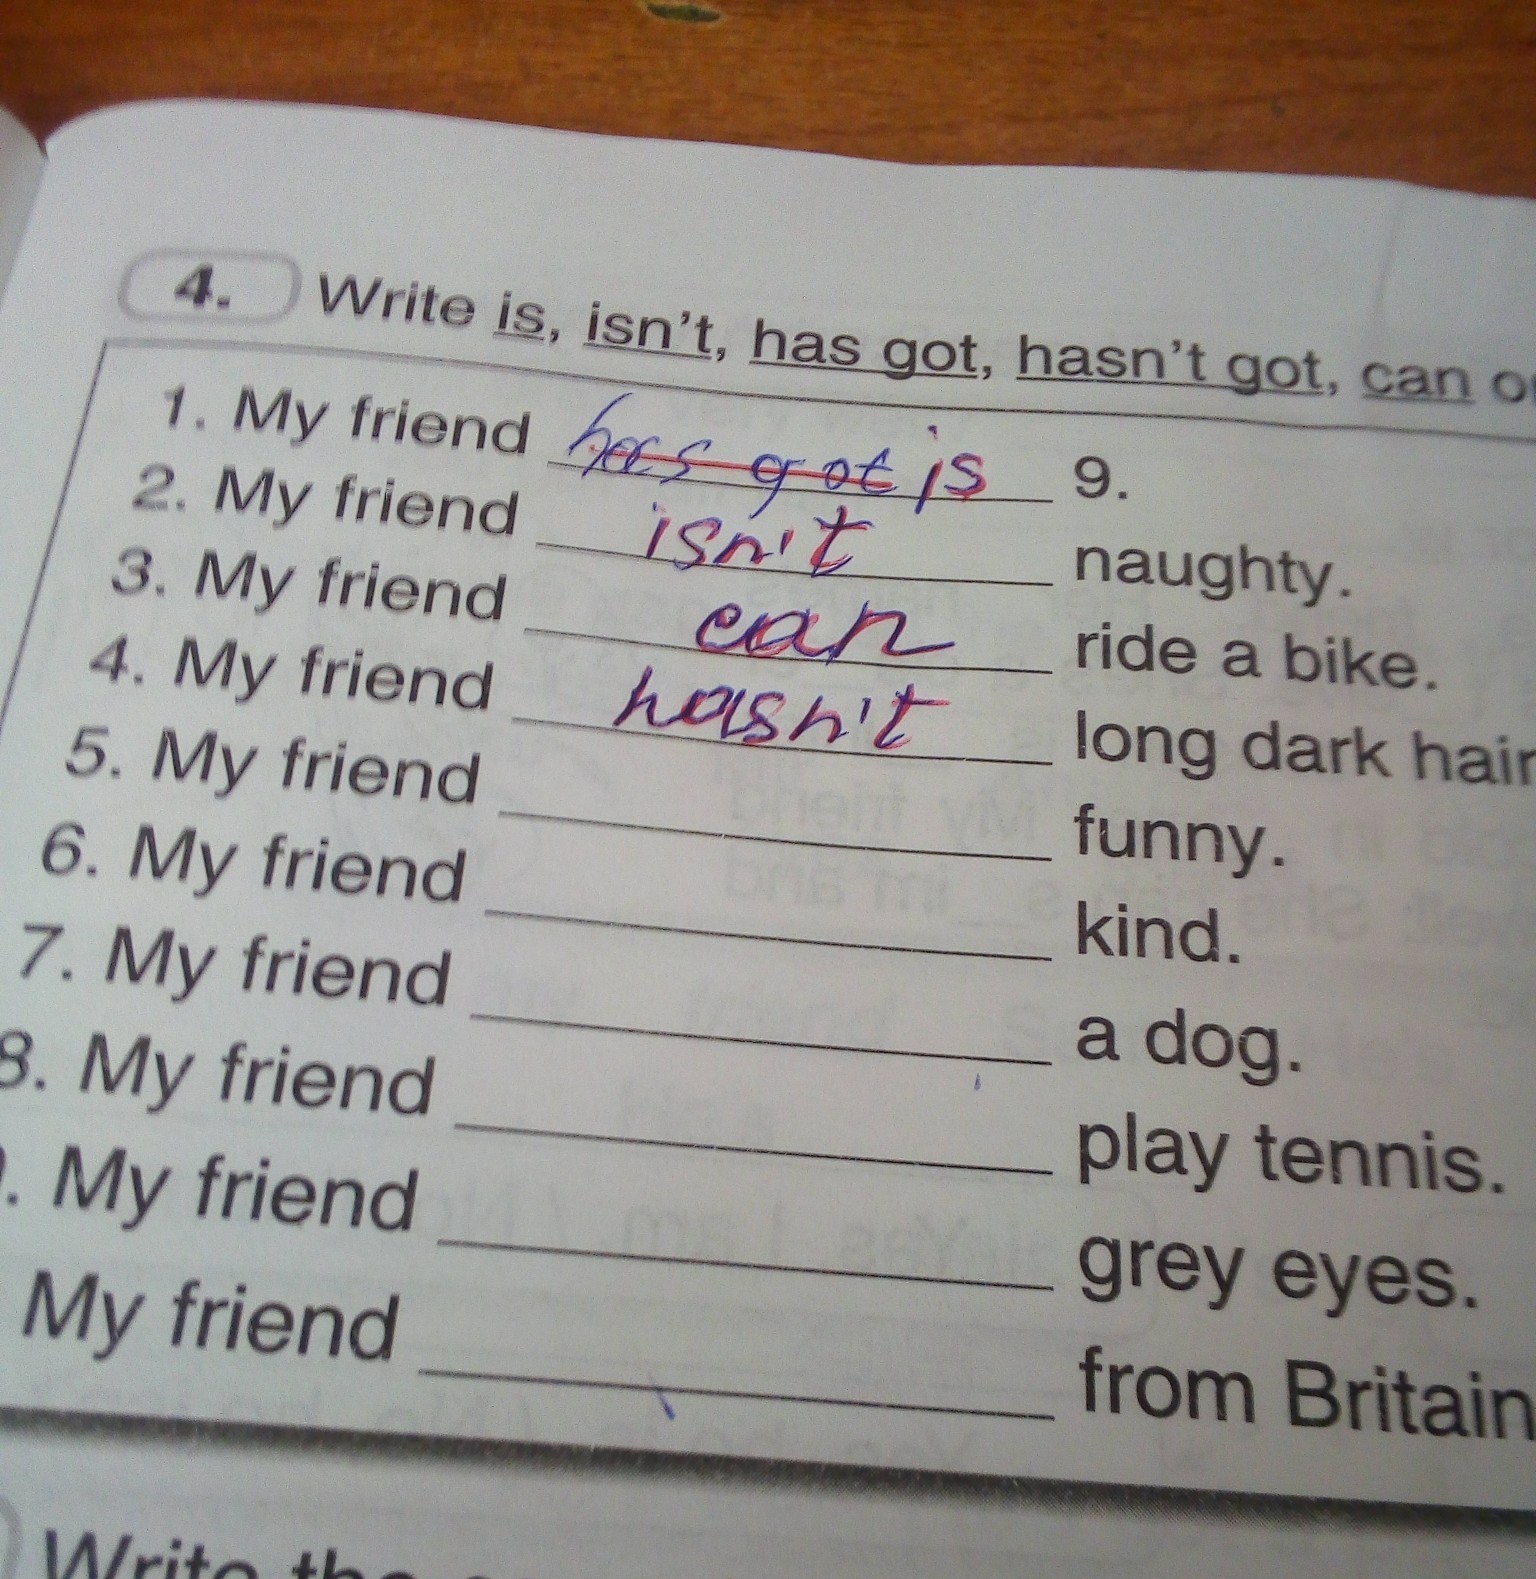 4. Write is, isn't, has got, hasn't got, can or
1. My friend has got is 9.
2. My friend isn't naughty.
3. My friend can ride a bike.
4. My friend hasn't long dark hair
5. My friend funny.
6. My friend kind.
7. My friend a dog.
8. My friend play tennis.
. My friend grey eyes.
My friend from Britain
Write the